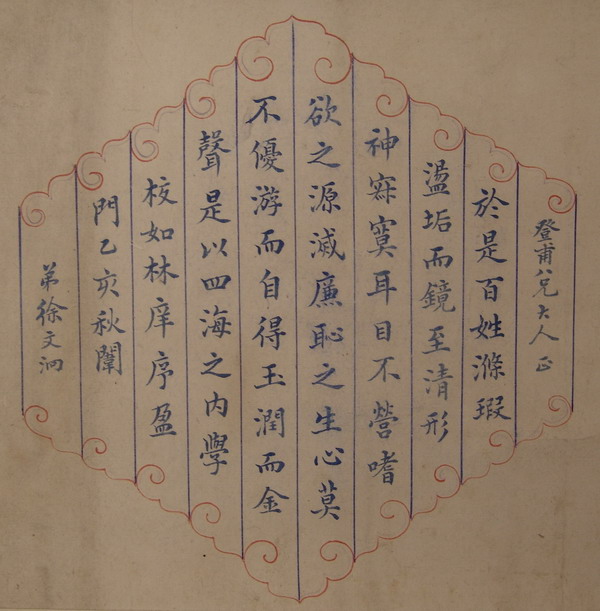 登甫八兄大人正
於是百姓滌瑕
盪垢而鏡至清形
神寂寞耳目不營嗜
欲之源滅廉恥之生心莫
不優游而自得玉潤而金
聲是以四海之内學
校如林庠序盈
門乙亥秋闈
弟徐文泂